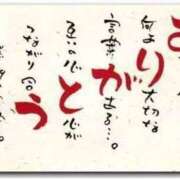 あ
何より大切な
言葉がある…。
互いの心と心が
つながり合う